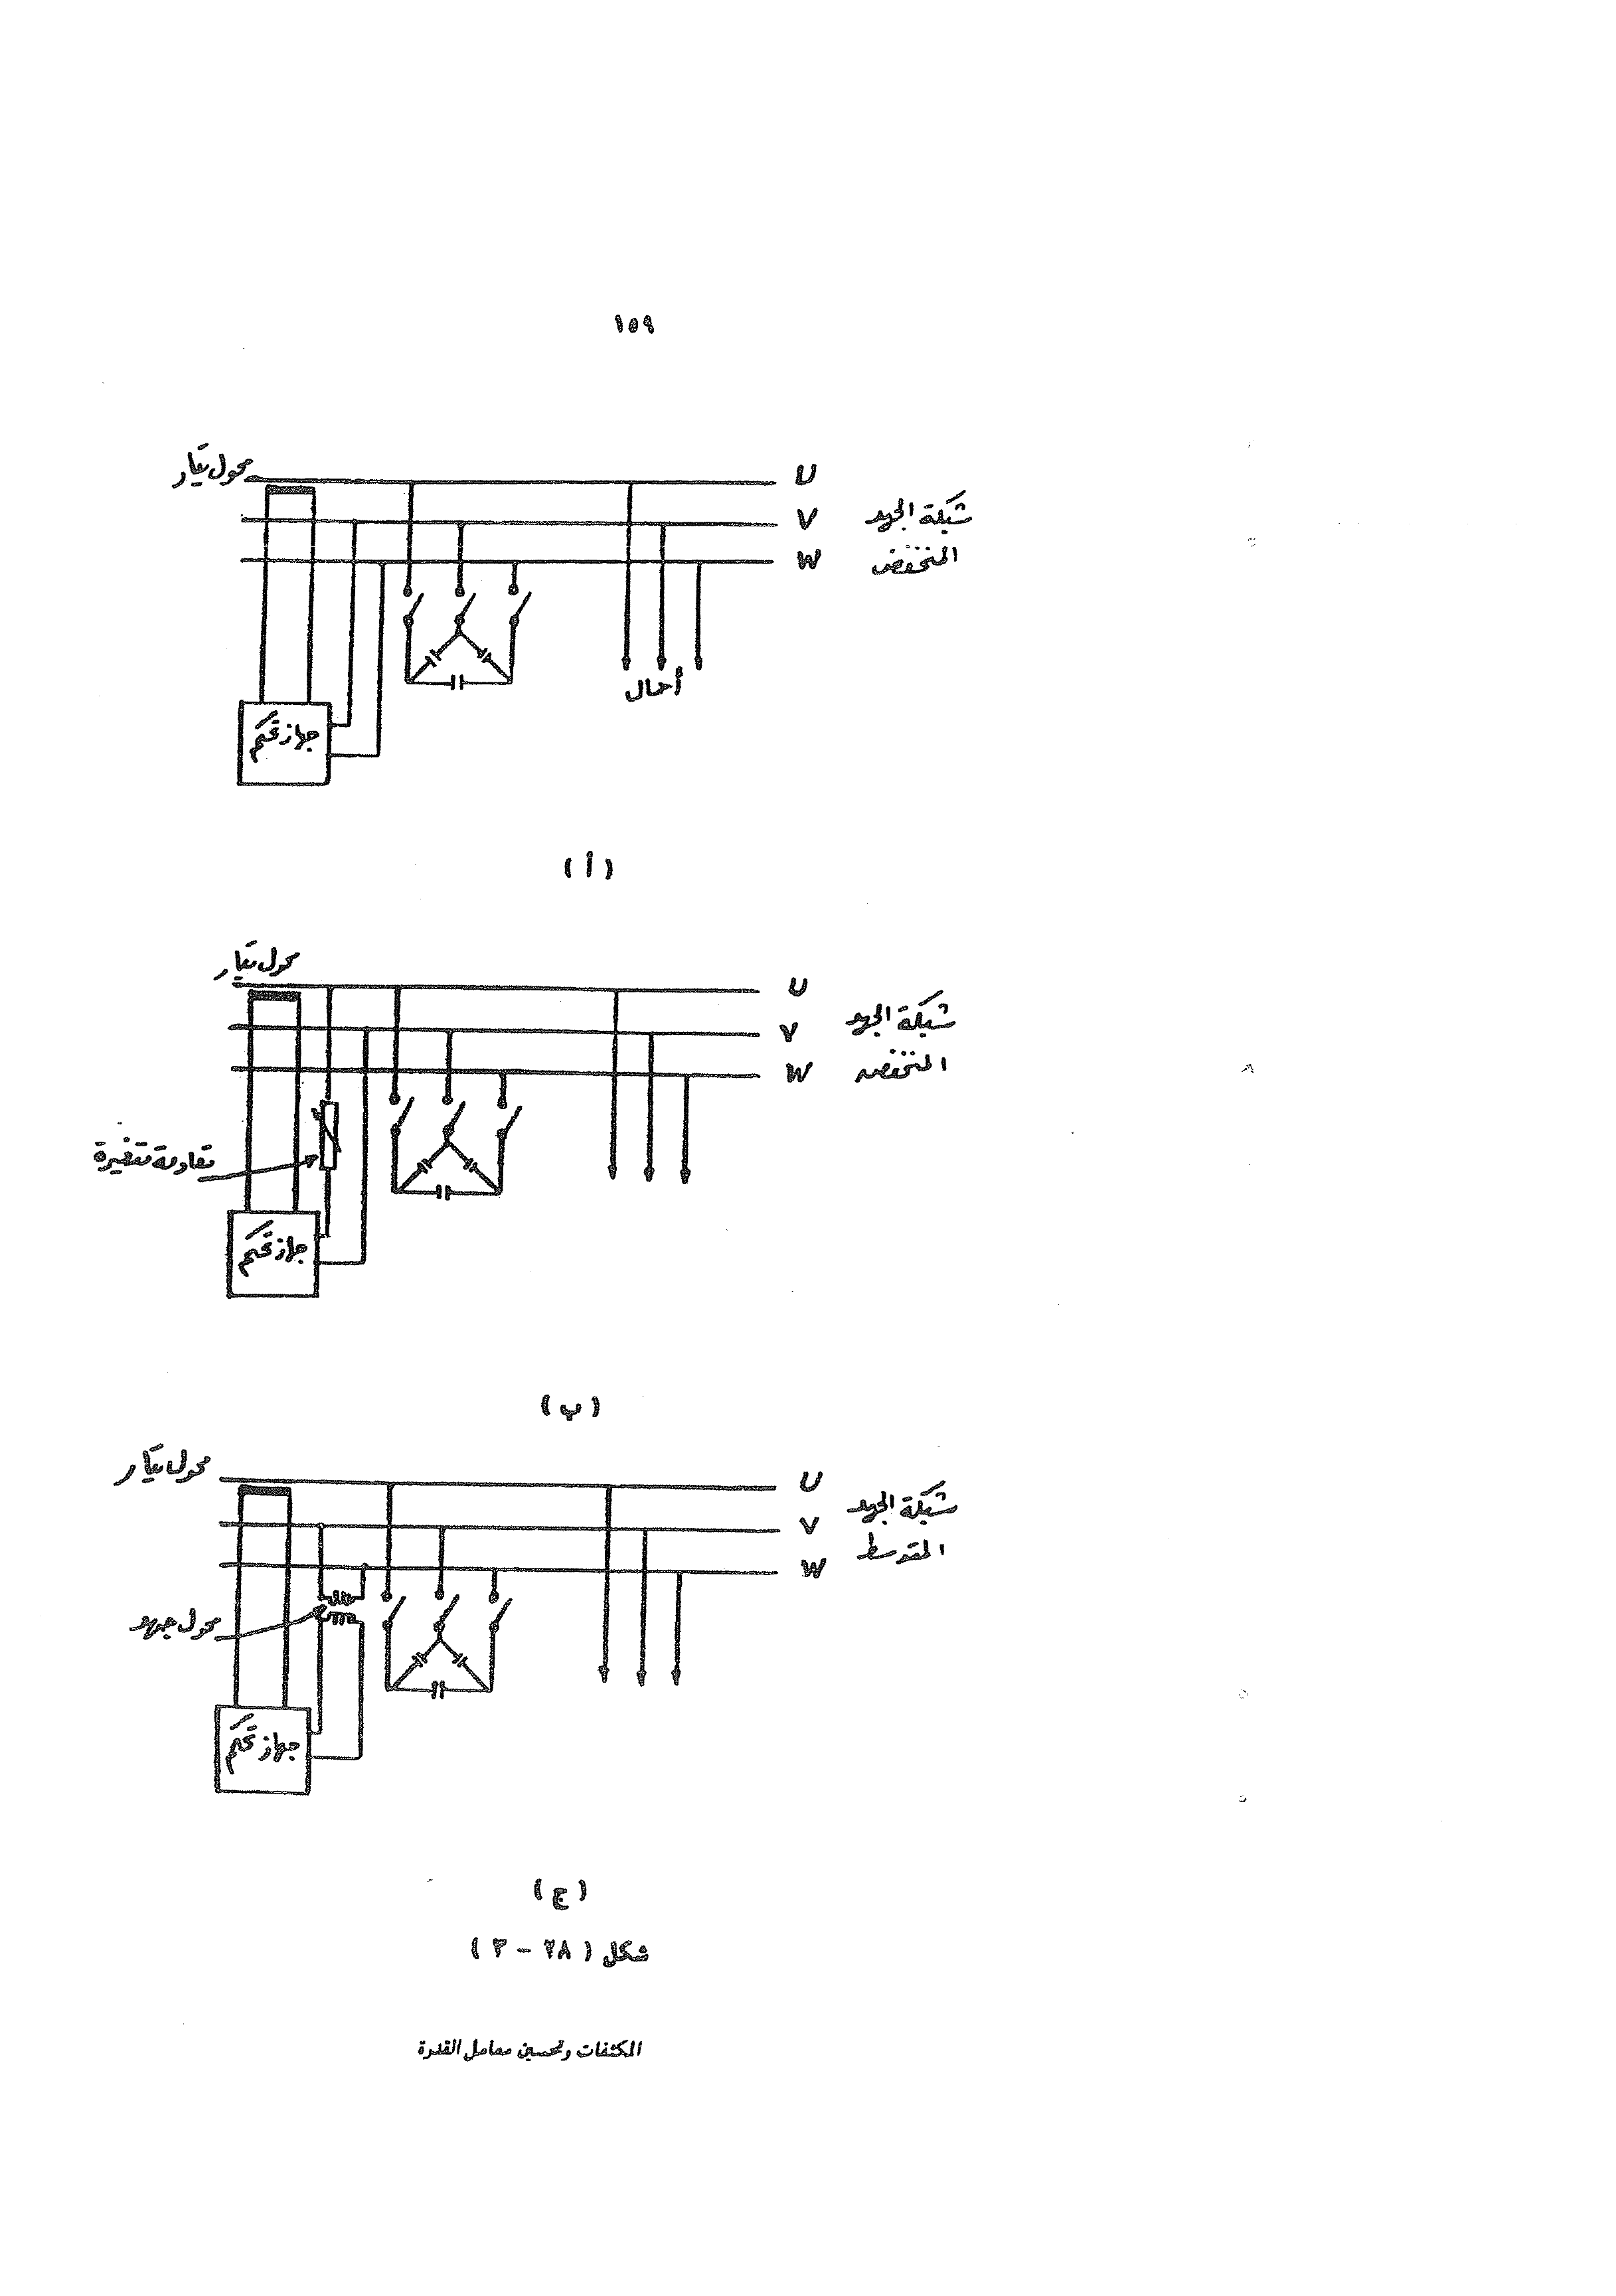 ١٥٩
محول تيار
U
V
W
شبكة الجهد
المنخفض
أحمال
جهاز تحكم
( أ )
محول تيار
U
V
W
شبكة الجهد
المنخفض
مقاومة متغيرة
جهاز تحكم
( ب )
محول تيار
U
V
W
شبكة الجهد
المتوسط
محول جهد
جهاز تحكم
( ج )
شكل ( ٢٨ - ٣ )
المكثفات وتحسين معامل القدرة